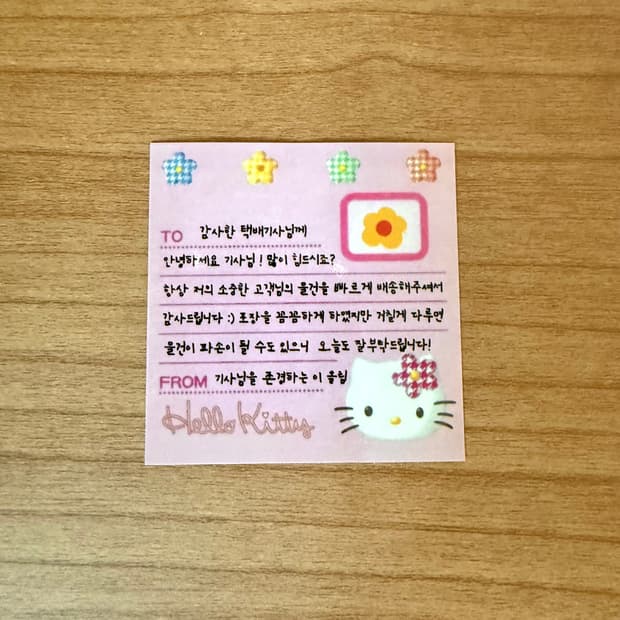 TO 감사한 택배기사님께
안녕하세요 기사님! 많이 힘드시죠?
항상 저의 소중한 고객님의 물건을 빠르게 배송해주셔서
감사드립니다 :) 포장을 꼼꼼하게 하였지만 거칠게 다루면
물건이 파손이 될 수도 있으니 오늘도 잘부탁드립니다!
FROM 기사님을 존경하는 이 올림
Hello Kitty